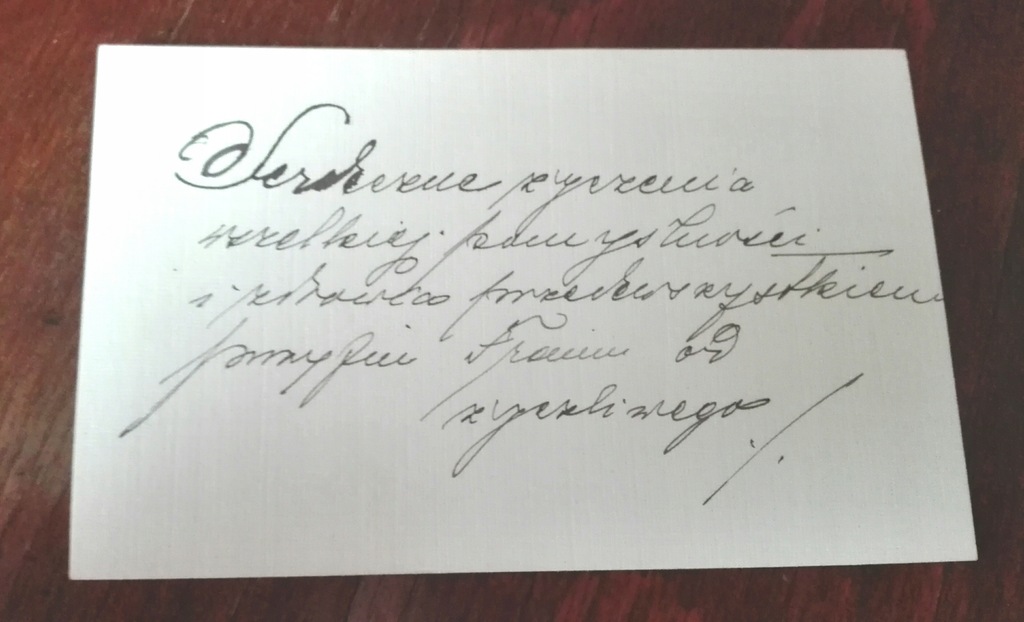 Serdeczne życzenia
wszelkiej pomyślności
i zdrowia przedewszystkiem
przyjm Franiu od
życzliwego